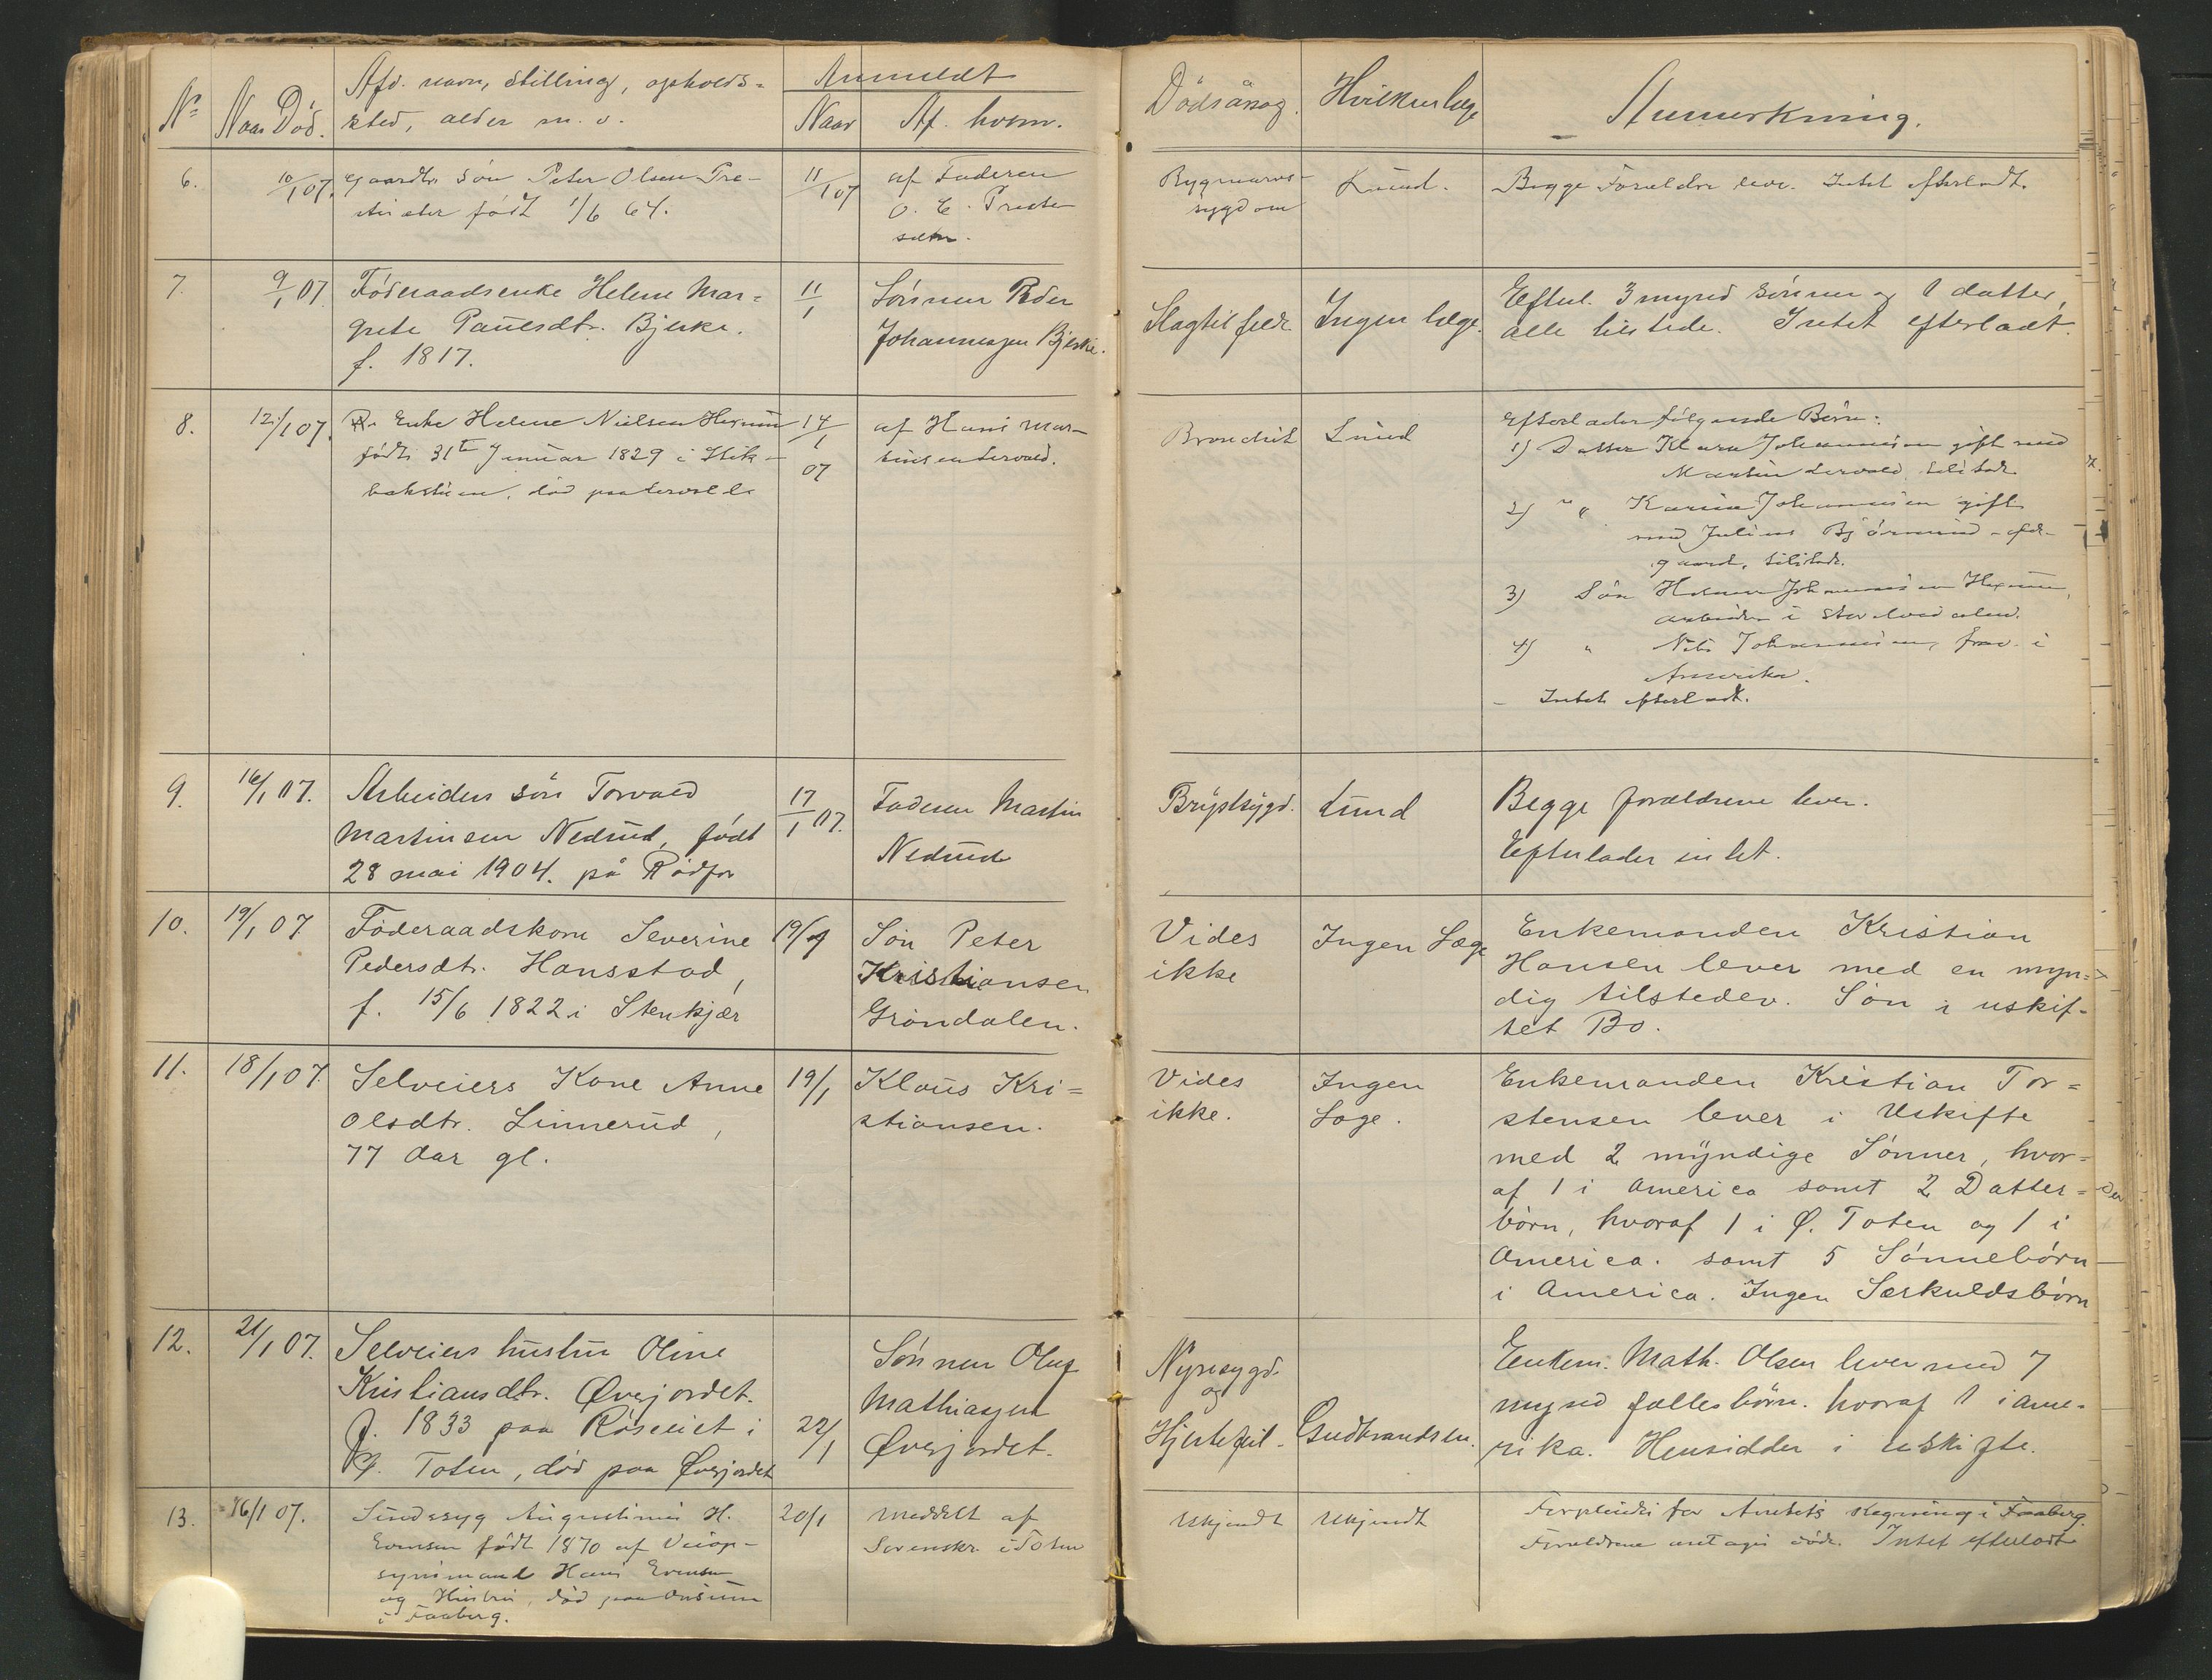 No
Naar Död.
Afd. navn, stilling, opholds=
sted, alder m. v.
Anmeldt
Naar
Af hvem.
Dödsårsag.
Hvilken læge
Anmerkning.
6.
10/1 07.
Gaardbr. Sön Peter Olsen Pre-
födt 1/6 64.
11/1 07
af Faderen
O. E. Preste
sæter.
Rygmarvs-
sygdom
Lund.
Begge Forældre leve. Intet efterladt.
7.
9/1 07
Föderaadsenke Helene Mar=
grete Paulsdtr. Bjerke.
f. 1817.
11/1
Sönnen Peder
Johannesen Bjerke.
Slagtilfælde
Ingen læge.
Efterl. 3 mynd sönner og 1 datter,
alle tilstede. Intet efterladt.
8.
12/1 07.
Enke Helene Nielsen Hexum
födt 31te Januar 1829 i
død paa
14/1 07
af Hans Mar-
tinsen
Bronchit
Lund
Efterlader følgende Børn:
1) Datter Klara Johannesen gift med
Martin tilstede
2) " " Karine Johannesen gift
med Julius
gaard, tilstede.
3) Sön Johannesen Hexum,
arbeider i
4) " Nils Johannesen, frav. i
Amerika.
- Intet efterladt.
9.
16/1 07.
Arbeiders sön Torvald
Martinsen Nedrud, født
28 mai 1904. på Rødfos
17/1 07.
Faderen Martin
Nedrud
Brystsygd.
Lund
Begge forældrene lever.
Efterlader intet.
10.
19/1 07
Föderaadskone Severine
Pedersdtr. Hansstad,
f. 15/6 1822 i Stenkjær
19/1
Sön Peter
Kristiansen
Gröndalen.
Vides
ikke
Ingen Læge
Enkemanden Kristian
Hansen lever med en myn=
dig tilstedev. Sön i uskif-
tet Bo.
11.
18/1 07.
Selveiers Kone Anne
Olsdtr. Linnerud,
77 Aar gl.
19/1
Klaus Kri=
stiansen.
Vides
ikke.
Ingen
Læge.
Enkemanden Kristian Tor=
stensen lever i Uskifte
med 2 myndige Sönner, hvor=
af 1 i America samt 2 Datter=
börn, hvoraf 1 i Ø. Toten og 1 i
America. samt 5 Sönnebörn
i America. Ingen Særkuldsbörn
12.
21/1 07.
Selveiers hustru Oline
Kristiansdtr. Øverjordet.
f. 1833 paa Röseiet i
Ø. Toten, död paa Øverjordet
22/1
Sönnen Oluf
Mathiasen
Øverjordet.
Nyresygd.
og
Hjertefeil.
Gudbrandsen.
Enkem. Math. Olsen lever med 7
mynd fællesbörn. hvoraf 1 i Ame-
rika. Hensidder i uskifte.
13.
16/1 07.
Sindssyg Augustinus H.
Evensen födt 1870 af Veiop-
synsmand Hans Evensen
og Hustru, död paa
i Faaberg.
20/1
Meddelt af
Sorenskr. i Toten
Ukjendt
Ukjendt
Forpleiedes for Amtets Regning i Faaberg.
Forældrene antages døde. Intet efterladt